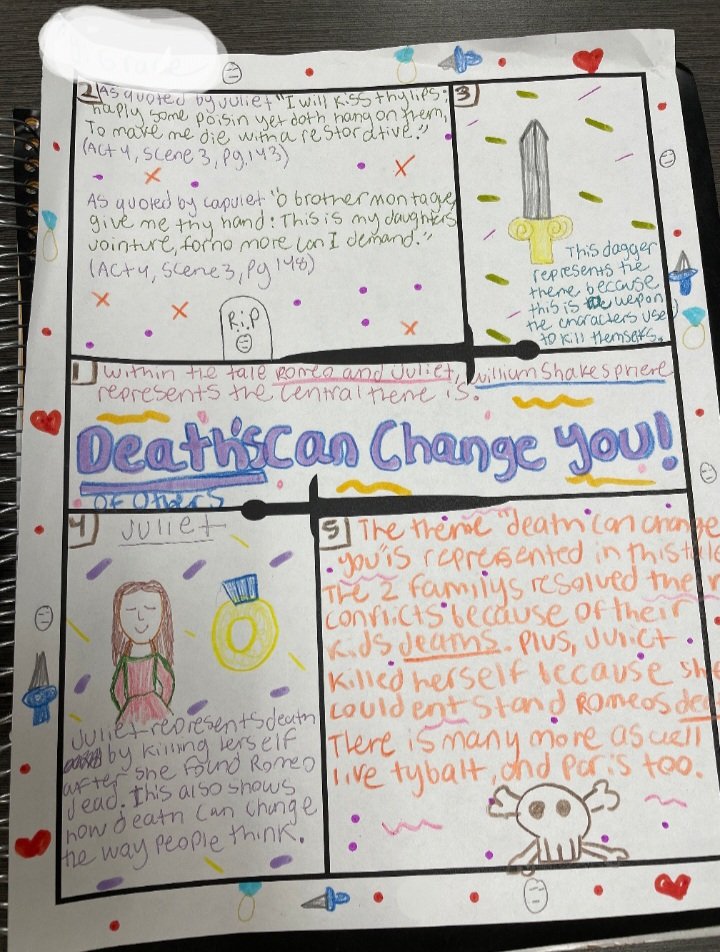 2 As quoted by Juliet "I will kiss thy lips;
haply some poisin yet doth hang on them,
To make me die with a restorative."
(Act 4, Scene 3, Pg. 143)
As quoted by capulet "O brother montage,
give me thy hand: This is my daughters
jointure, for no more can I demand."
(Act 4, Scene 3, Pg 148)
R.I.P
3
This dagger
represents the
theme because
this is the wepon
the characters use
to kill themselfs.
1 Within the tale Romeo and Juliet, William Shakesphere
represents the central theme is:
Death's Can Change You!
of others
4 Juliet
Juliet represents death
by killing herself
after she found Romeo
dead. This also shows
how death can change
the way people think.
5 The theme "death" can change
you" is represented in this tale
The 2 familys resolved their
conflicts because of their
kids deaths. Plus, Juliet
killed herself because she
couldent stand Romeos
There is many more as well
like tybalt, and paris too.